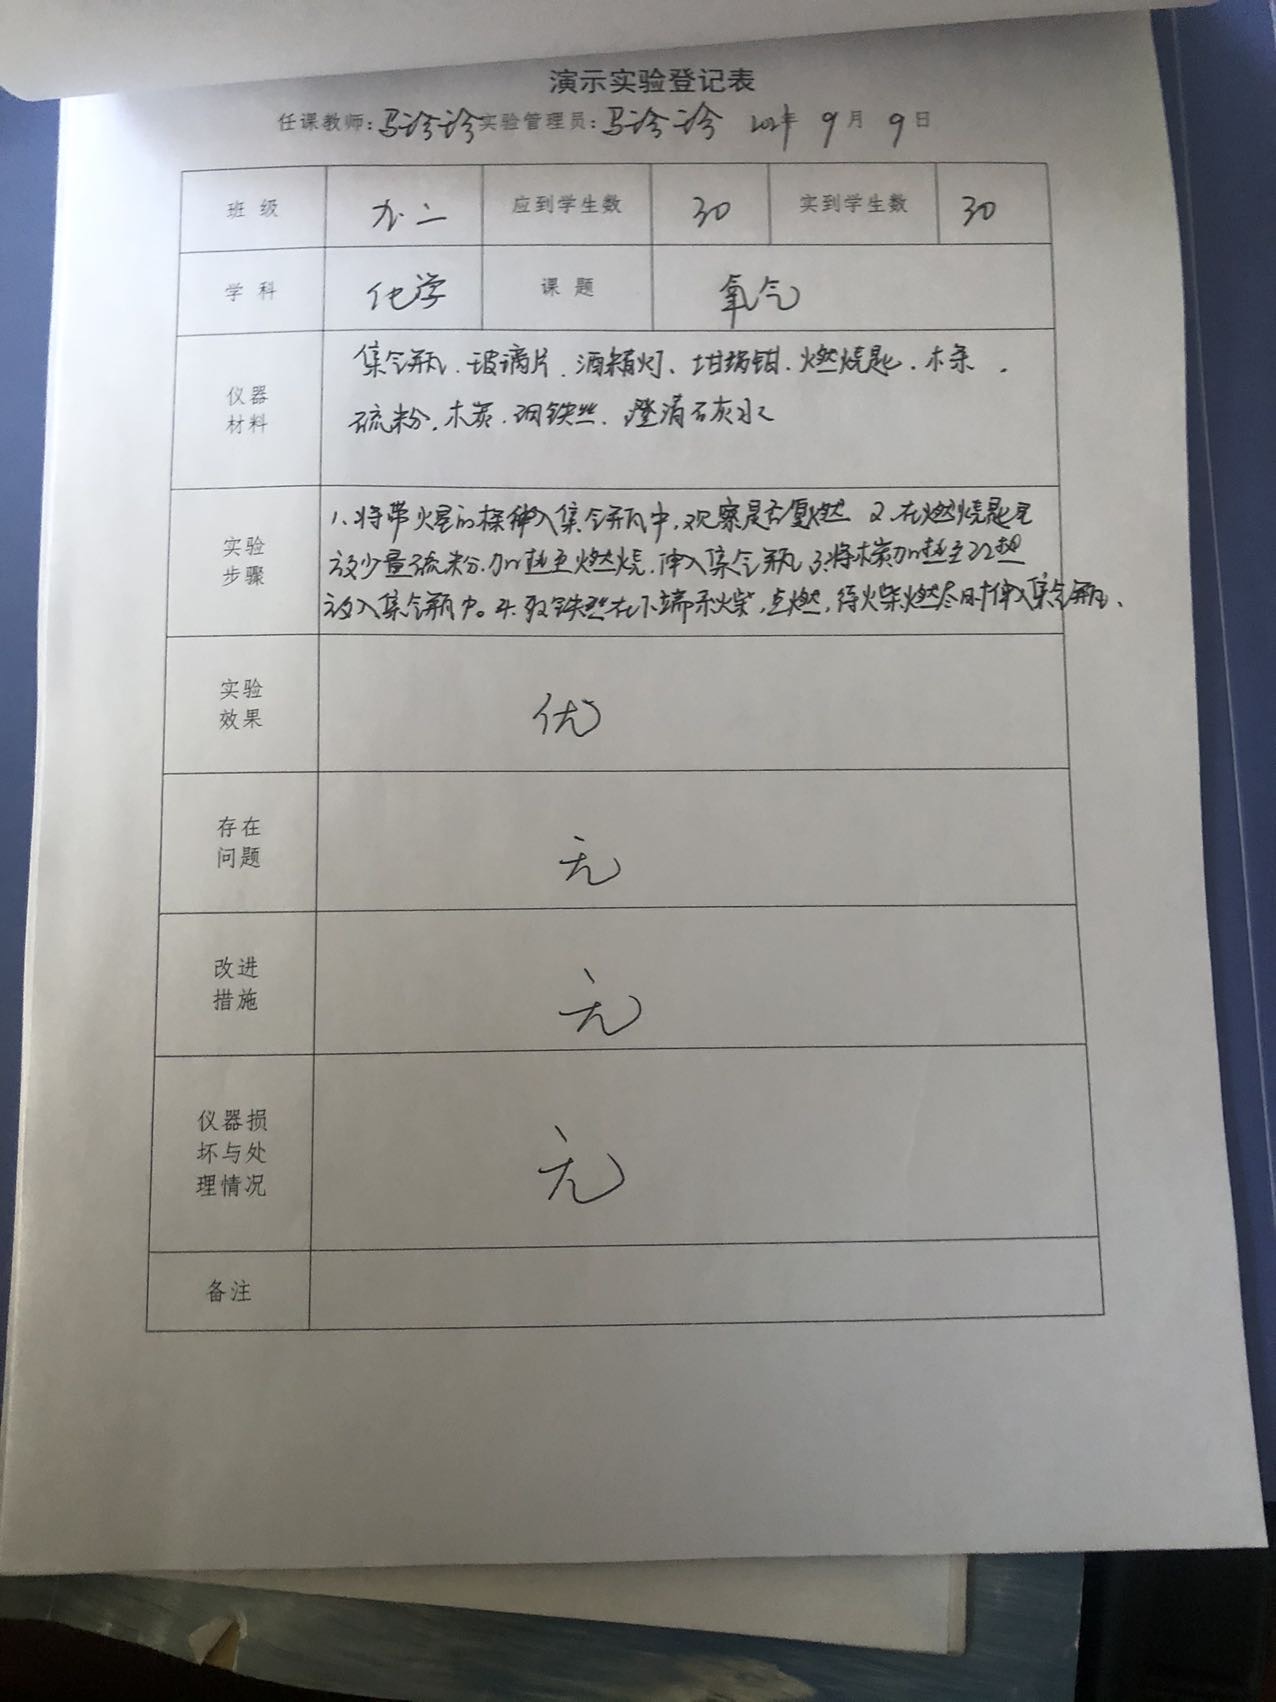 演示实验登记表
任课教师：马诊诊 实验管理员：马诊诊 年 9 月 9 日
班 级 九.二 应到学生数 30 实到学生数 30
学 科 化学 课 题 氧气
仪器
材料
集气瓶.玻璃片.酒精灯、坩埚钳.燃烧匙.木条.
硫粉.木炭.细铁丝.澄清石灰水
实验
步骤
1、将带火星的木条伸入集气瓶中,观察是否复燃 2.在燃烧匙里
放少量硫粉.加热至燃烧.伸入集气瓶 3.将木炭加热至红热
放入集气瓶中。4.取铁丝在下端系火柴,点燃,待火柴燃尽时伸入集气瓶、
实验
效果
优
存在
问题
无
改进
措施
无
仪器损
坏与处
理情况
无
备注